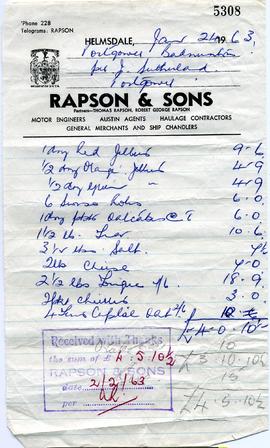 5308
'Phone 228
Telegrams: RAPSON
HELMSDALE, Jan 21 1963.
Portgower Badminton
per J. Sutherland
Portgower
RAPSON & SONS
Partners—THOMAS RAPSON, ROBERT GEORGE RAPSON
MOTOR ENGINEERS AUSTIN AGENTS HAULAGE CONTRACTORS
GENERAL MERCHANTS AND SHIP CHANDLERS
1 doz Red Jellies 9 - 6
1/2 doz Orange Jellies 4 - 9
1/2 doz Green " 4 - 9
6 Swiss Rolls 6. 0.
1 doz pkts Oatcakes 6. 0.
1 1/2 lb 10. 6
Salt 4
2 lbs Cheese 4 - 0
2 1/2 lbs Tongue 18 - 9
3. 0
£4 - 0
10
£3 10 - 10 1/2
15
£4 - 5 - 10 1/2
Received with Thanks
the sum of £ 4. 5. 10 1/2
RAPSON & SONS
date 2/2/63
per